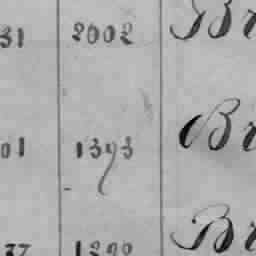 31 2002 Br
01 1393 Br
Br